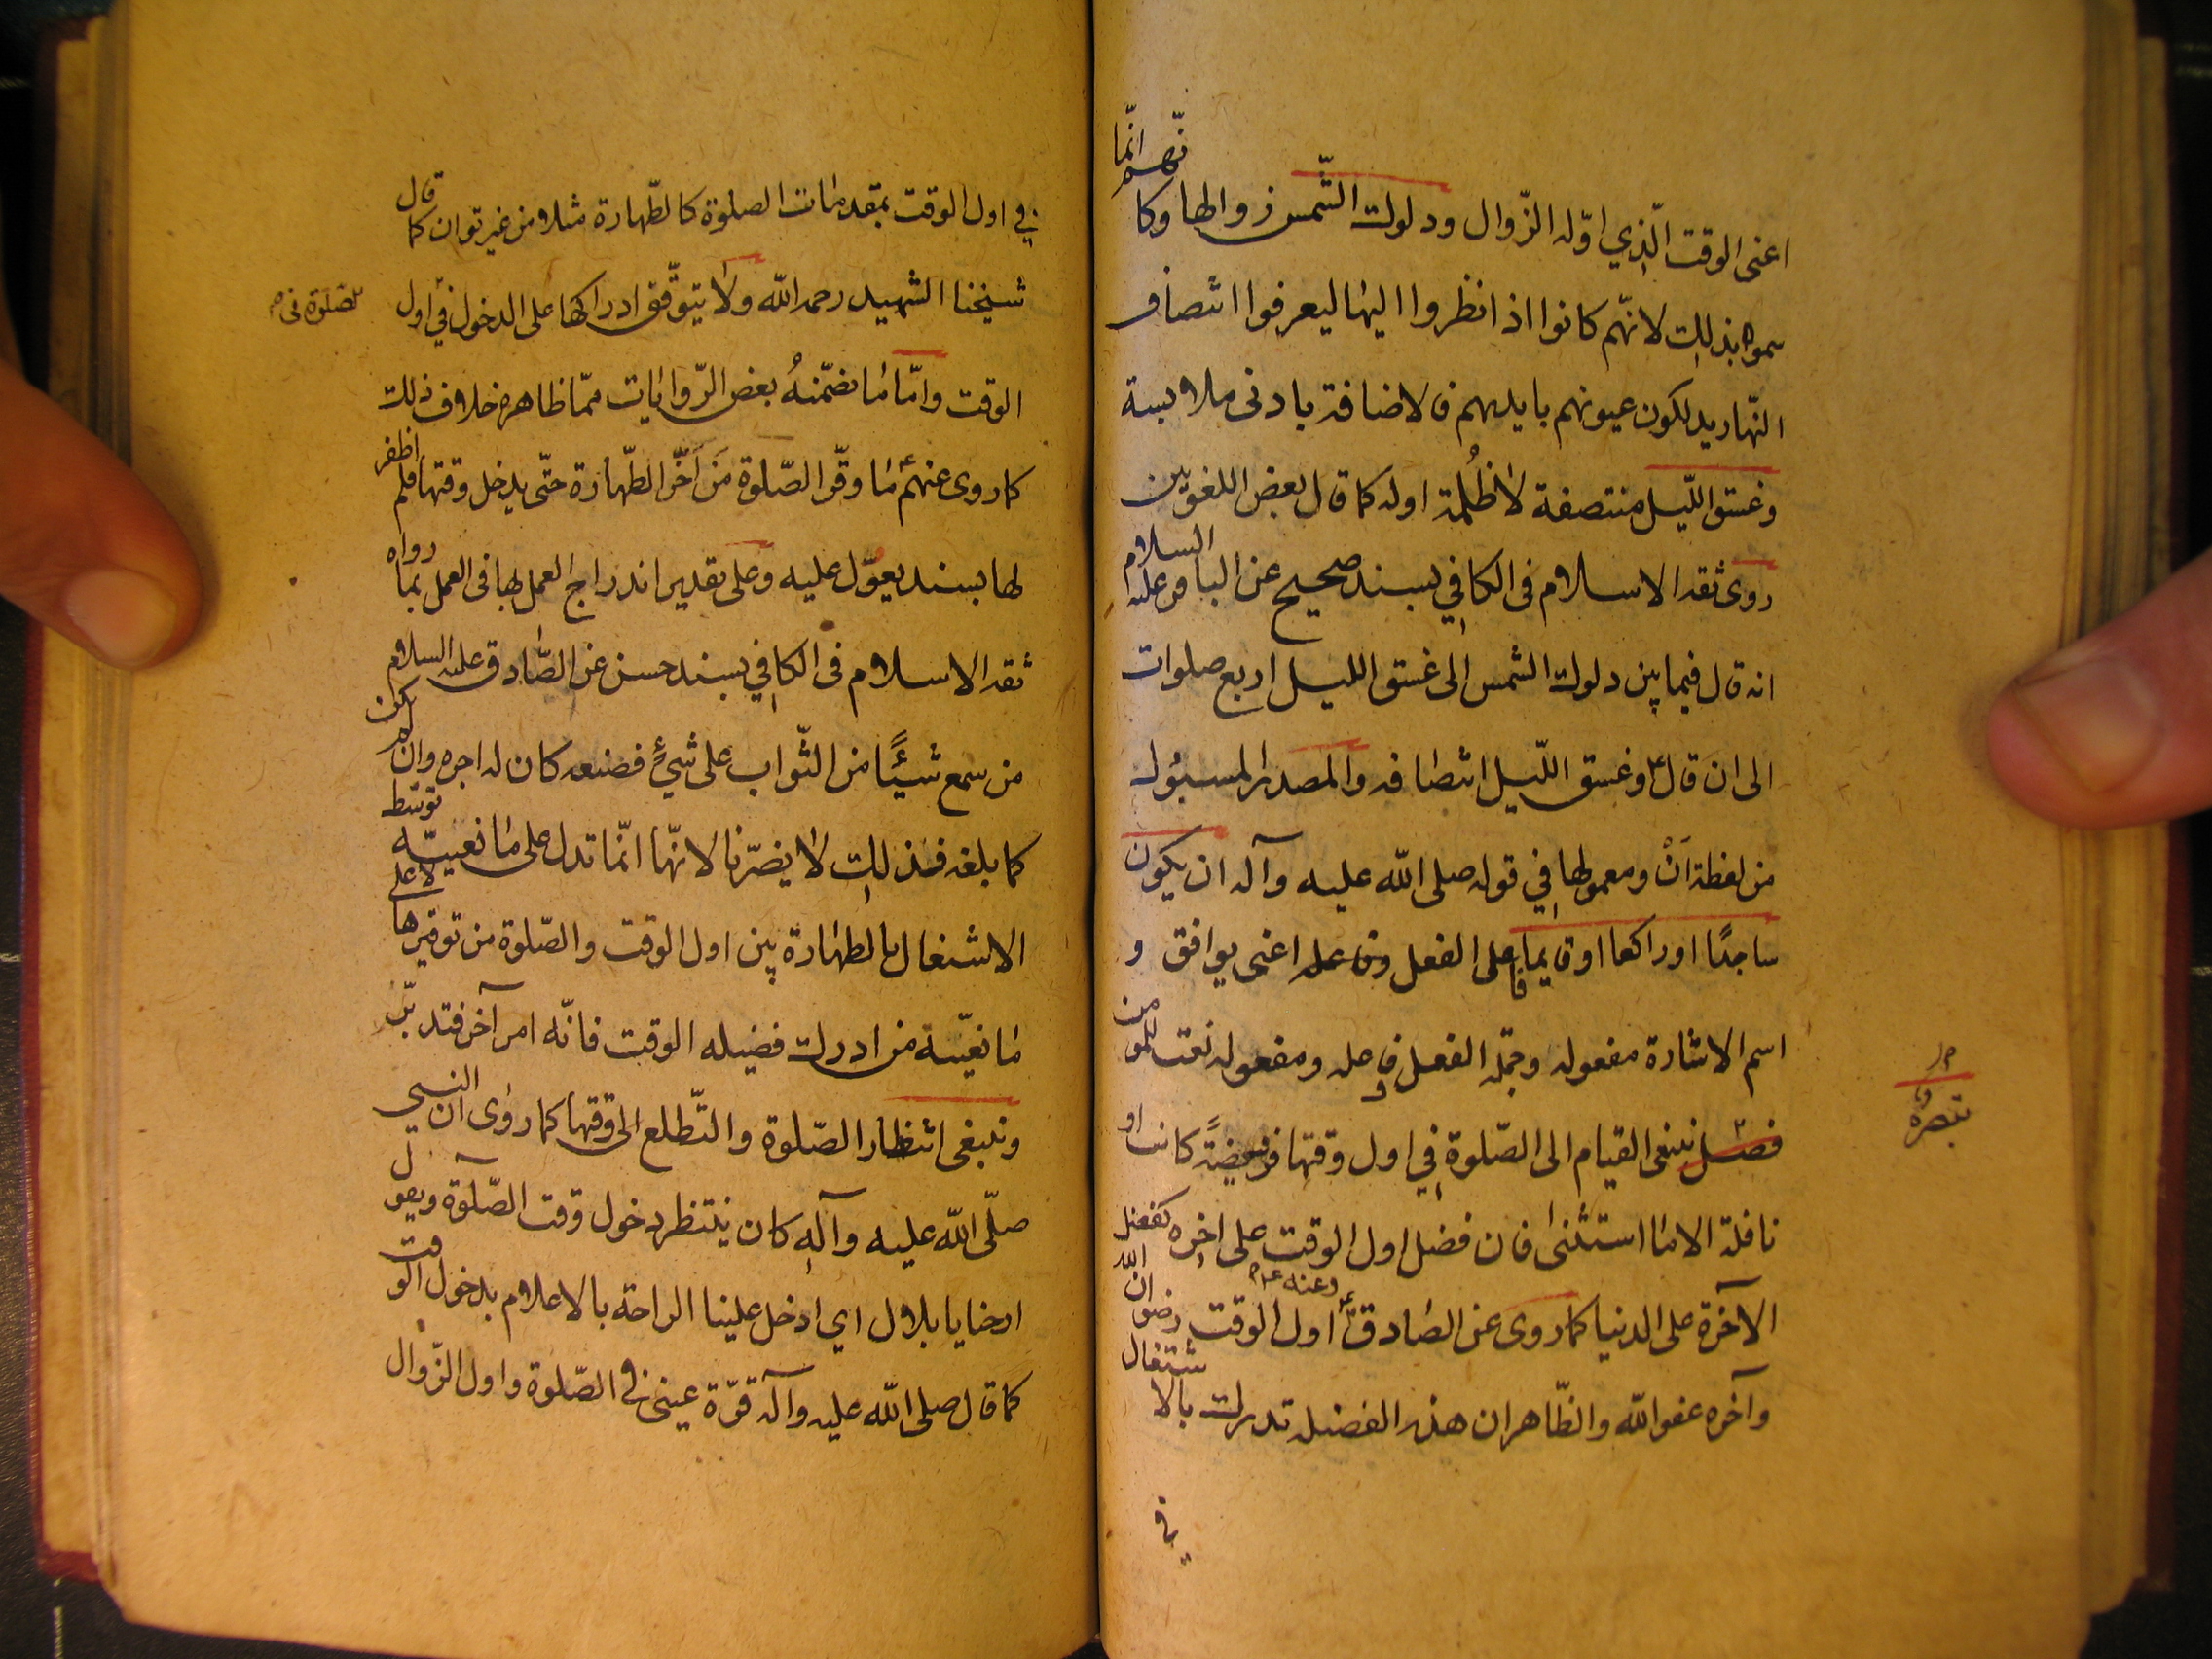 اعنى الوقت الّذي اوّله الزّوال ودلوك الشّمس زوالها وكانّهم انّما
سموه بذلك لانّهم كانوا اذا نظروا اليها ليعرفوا انتصاف
النّهار يدلكون عيونهم بايديهم فالاضافة بادنى ملابسة
وغسق اللّيل منتصفة لا ظُلمة اوله كما قال بعض اللغويّين
روى ثقة الاسلام فى الكافي بسند صحيح عن الباقر عليه السلام
انه قال فيما بين دلوك الشمس الى غسق الليل اربع صلوات
الى ان قال ع وغسق اللّيل انتصافه والمصدر المسبوك
من لفظة اَنْ ومعمولها في قوله صلى الله عليه وآله ان يكون
ساجدًا او راكعا او قايما فاعل الفعل وفاعله اعنى يوافق و
اسم الاشارة مفعوله وجملة الفعل وفاعله ومفعوله نعت للمومن
فصل ينبغى القيام الى الصّلوة في اول وقتها فريضةً كانت او
تبصرة
نافلة الا ما استثنى فان فضل اول الوقت على اخره كفضل
الآخرة على الدنيا كما روى عن الصادق ع وعنه ع اول الوقت رضوان الله
وآخره عفو الله والظّاهر ان هذه الفضيلة تدرك بالاشتغال
في
في اول الوقت بمقدمات الصلوة كالطّهارة مثلا من غير توان كما قال
شيخنا الشهيد رحمه الله ولا يتوقّف ادراكها على الدخول في اول
الوقت وامّا ما تضمّنهُ بعض الرّوايات ممّا ظاهره خلاف ذلك
كما روى عنهم ع ما وقّر الصّلوة مَن اَخّر الطّهارة حتّى يدخل وقتها فلم اظفر
لها بسند يعوّل عليه وعلى تقدير اندراج العمل بها فى العمل بما رواه
ثقة الاسلام فى الكافي بسند حسن عن الصّادق عليه السلام
من سمع شيئًا من الثّواب على شيءٍ فصنعه كان له اجره وان لم يكن
كما بلغه فذلك لا يضرّنا لانّها انّما تدل على ما نعيته توسّط
الاشتغال بالطهارة بين اول الوقت والصّلوة من توقيرها لا على
ما نعيته من ادرك فضيله الوقت فانّه امر آخر فتدبّر
وينبغى انتظار الصّلوة والتّطلع الى وقتها كما روى ان النبي
صلّى الله عليه وآله كان ينتظر دخول وقت الصّلوة ويقول
ارحنا يا بلال اي ادخل علينا الراحة بالاعلام بدخول الوقت
كما قال صلى الله عليه وآله قرّة عينى في الصّلوة واول الزّوال